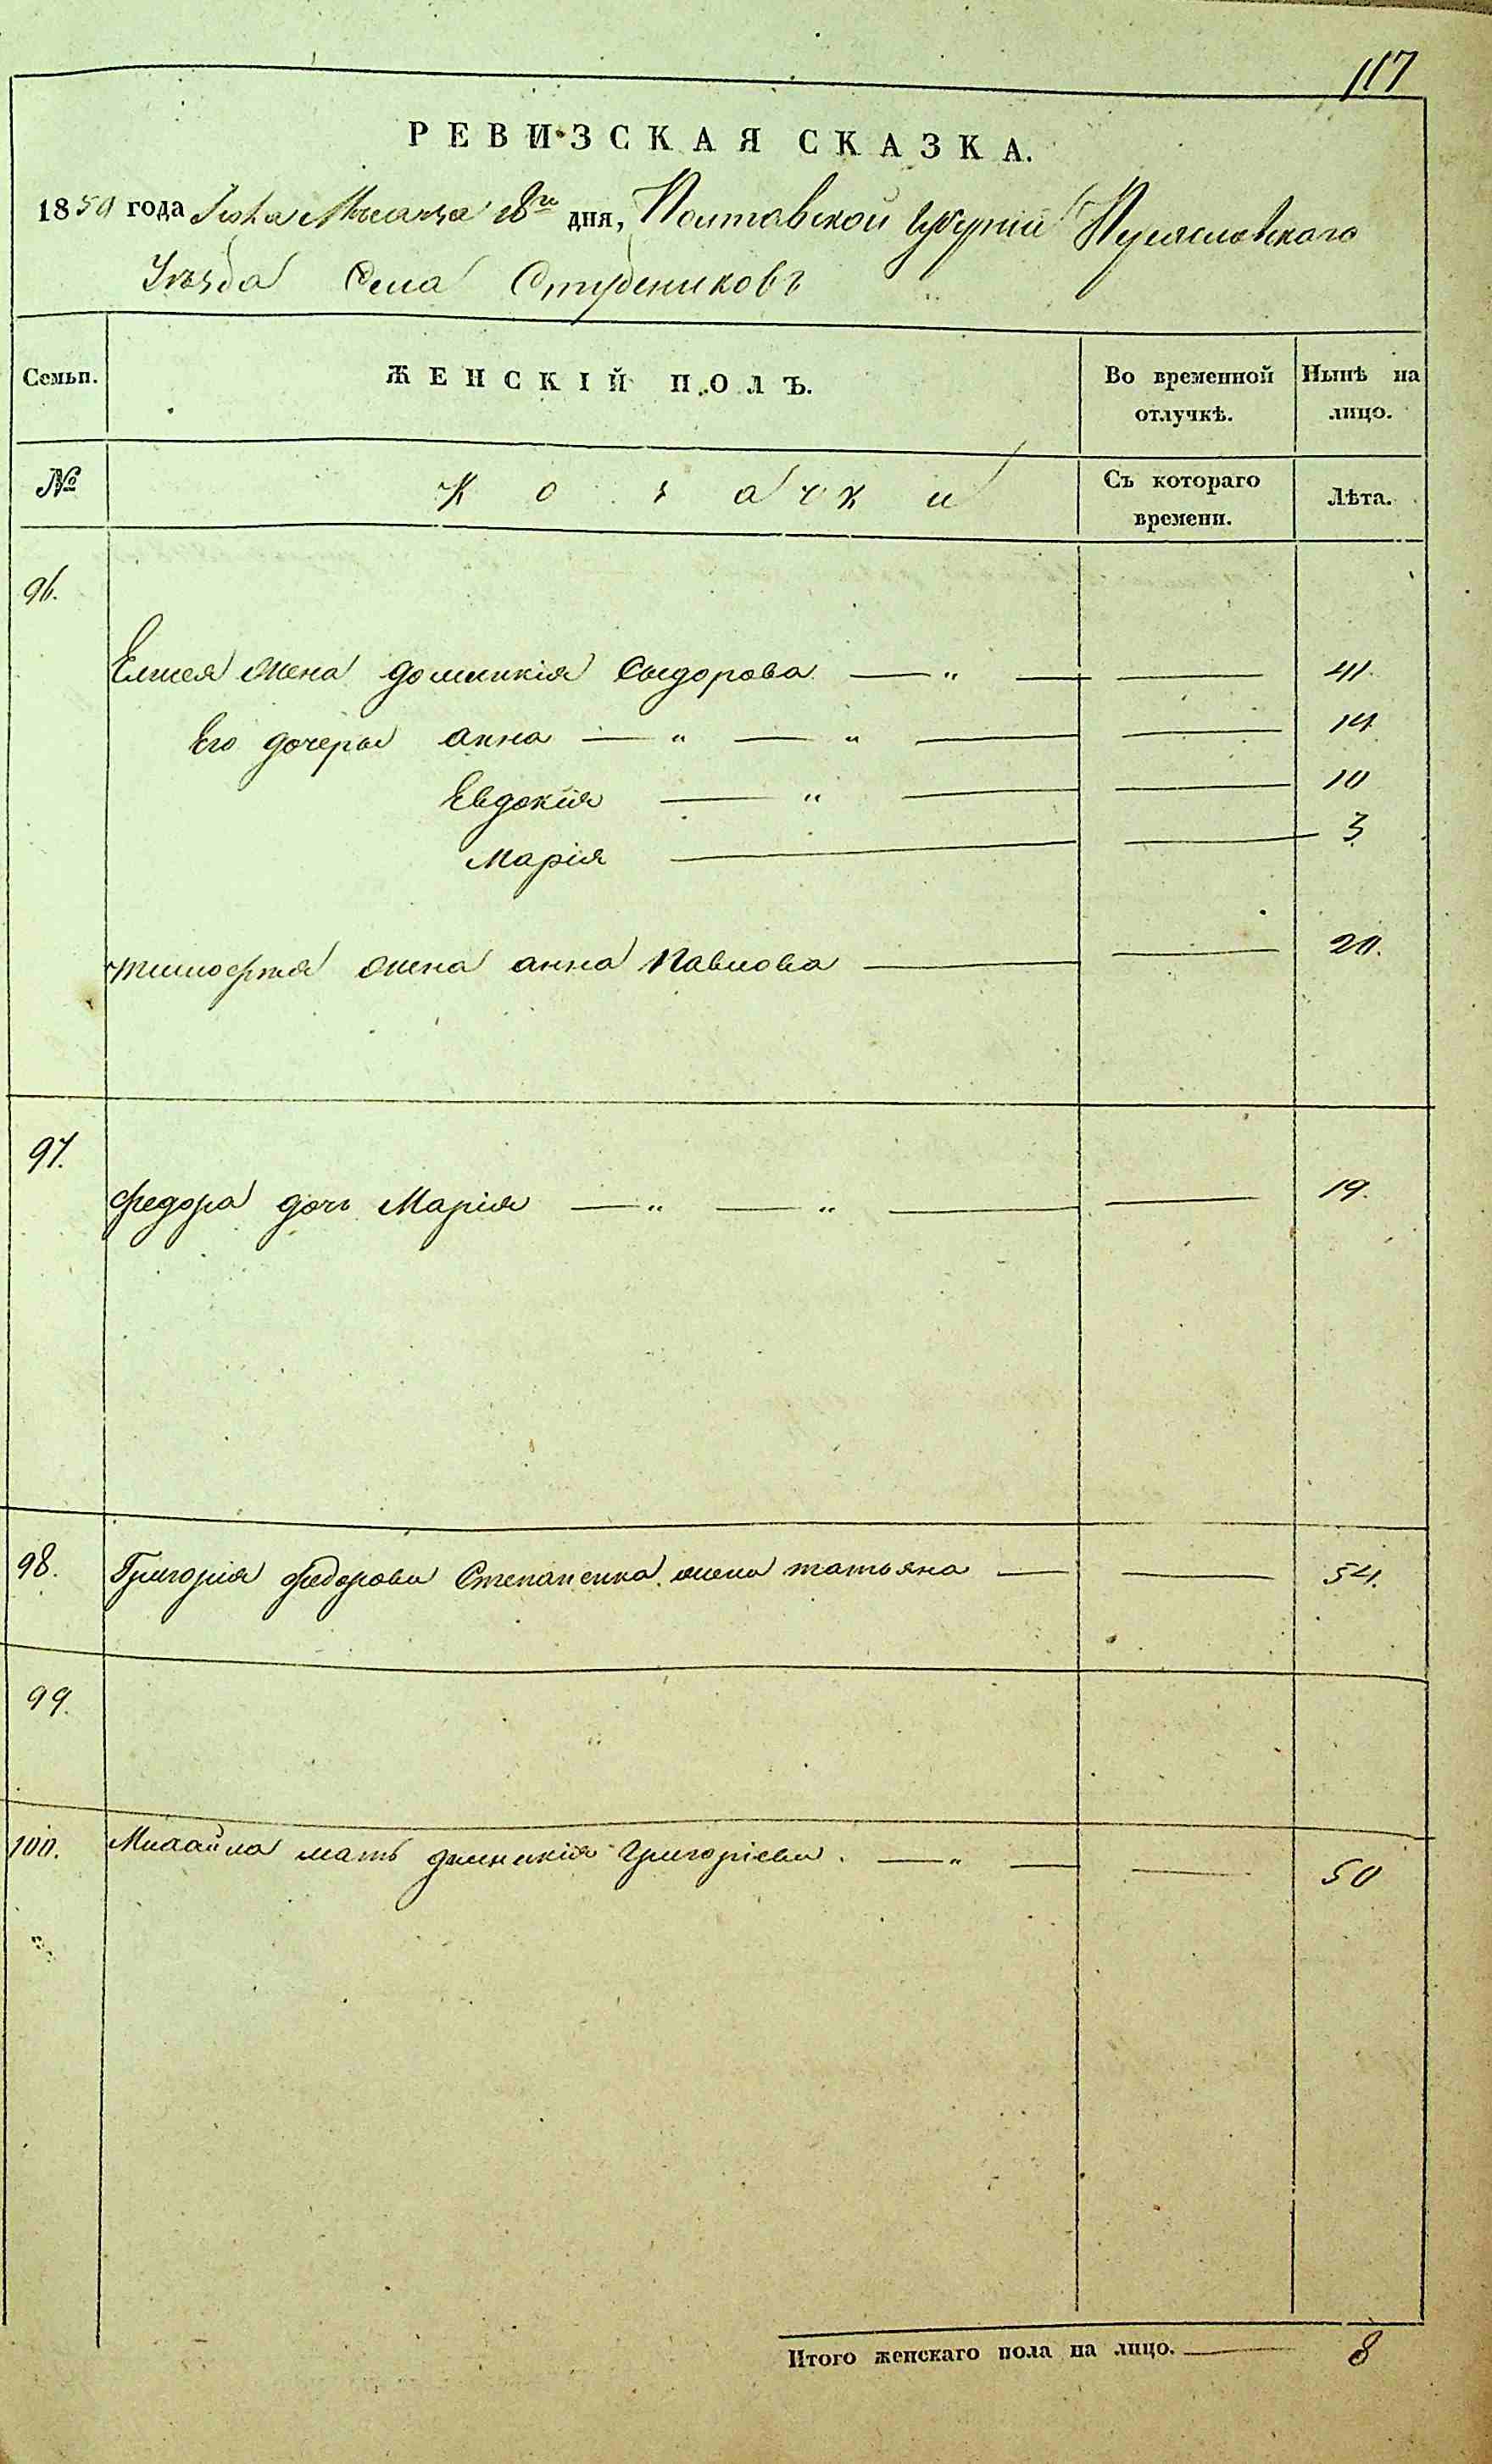 117
РЕВИЗСКАЯ СКАЗКА.
1850 года Мѣсяца 18го дня, Полтавской Губерніи Переяславскаго
Уѣзда Села Студениковъ
Семьи. ЖЕНСКІЙ ПОЛЪ. Во временной отлучкѣ. Нынѣ на лицо.
№ Козачки Съ котораго времени. Лѣта.
96.
Елисея жена Домникія Сидорова — " — — 41.
Его дочеры Анна — " — " — — 14
Евдокія — " — — 10
Марія — — 3
Тимофея жена Анна Павлова — — 20.
97.
Федора дочь Марія — " — " — — 19.
98. Григорія Федорова Степаненка жена Татьяна — — 54.
99.
100. Михайла мать Домникія Григоріева. — " — — 50
Итого женскаго пола на лицо. — 8